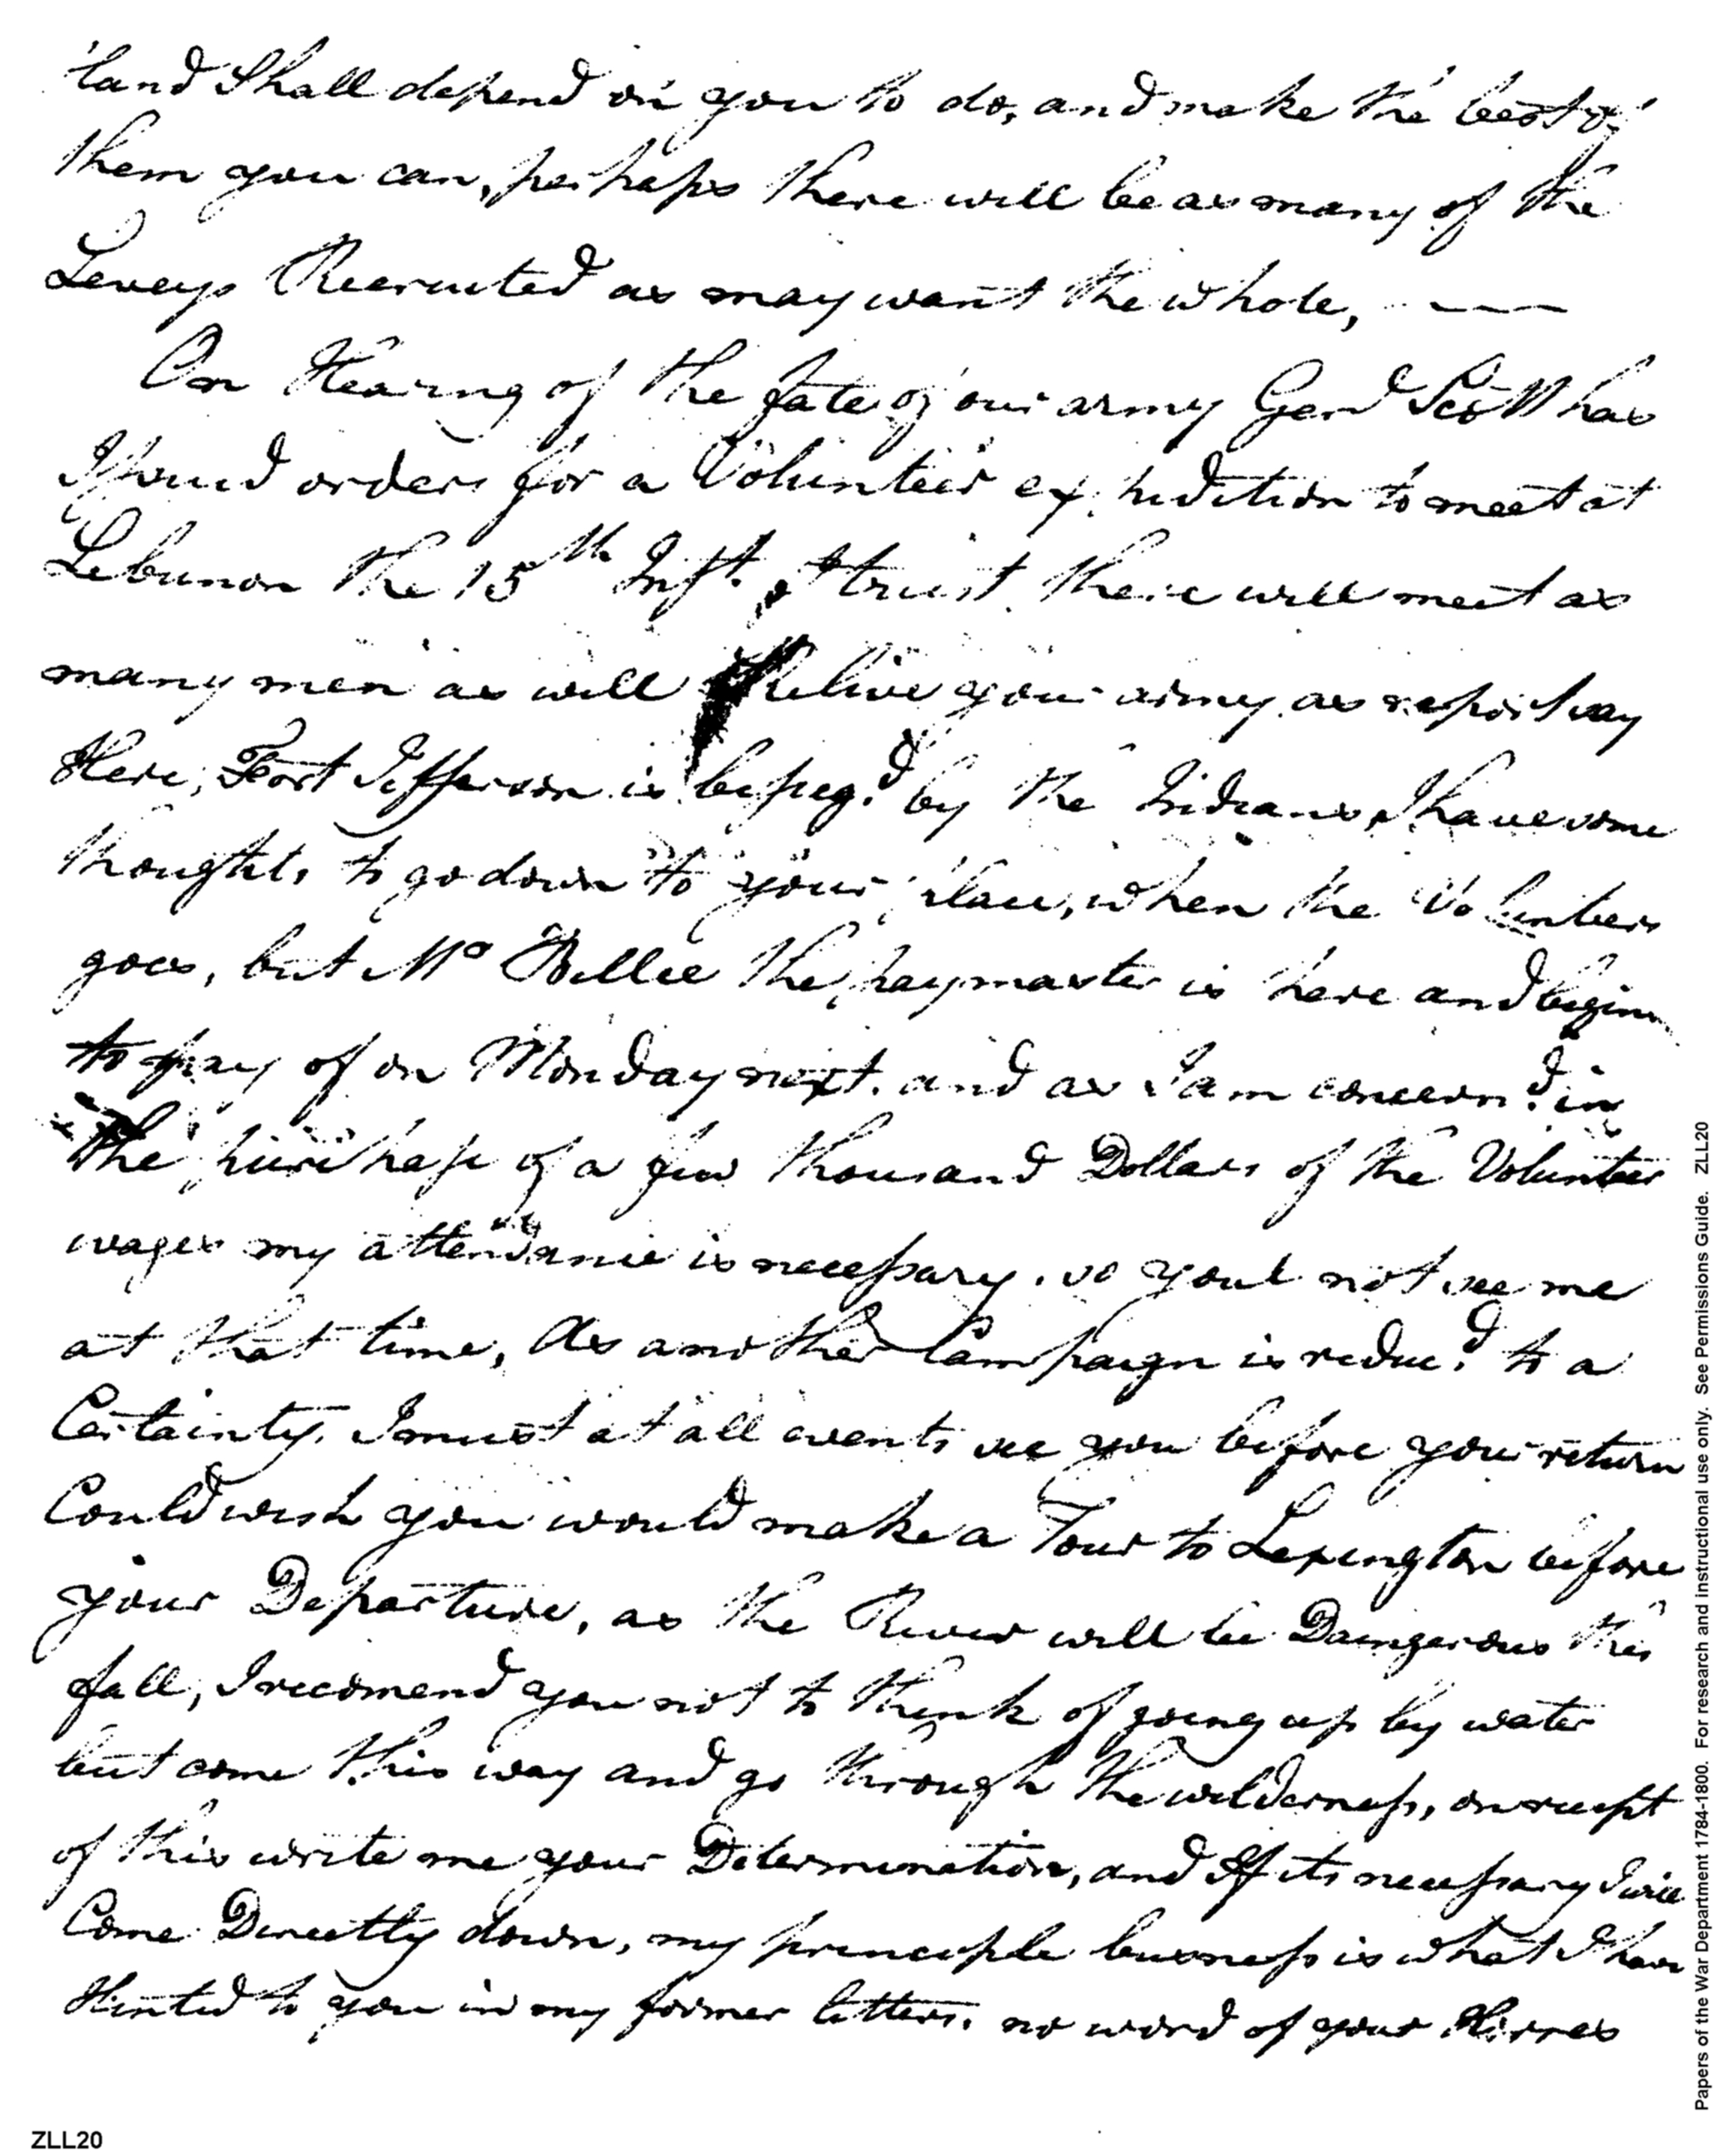 land Shall depend on you to do, and make the best of
them you can, perhaps there will be as many of the
Leveys Recruited as may want the whole, — — —
On Hearing of the fate of our army Genl Scott has
Issued orders for a Volunteer expedition to meet at
Lebunon the 15th Inst. I trust there will meet as
many men as will Relive your army as report say
Here, Fort Jefferson is beseg.d by the Indians, I have some
thoughts to go down to your place, when the Volunteers
goes, but Mr Bellee the paymaster is here and begins
to pay of on Monday next. and as I am concern.d in
the purchase of a few thousand Dollars of the Volunteer
wages my attendance is necessary. so youl not see me
at that time, As another Campaign is reduc.d to a
Certainty. I must at all events see you before your return
Could wish you would make a Tour to Lexington before
your Departure, as the River will be Daingerous this
fall, I recomend you not to think of going up by water
but come this way and go through the wilderness, on recept
of this write me your Determination, and If its necessary I will
Come Directly down, my principle busness is what I have
Hinted to you in my former letters. no word of your Horses
Papers of the War Department 1784-1800. For research and instructional use only. See Permissions Guide. ZLL20
ZLL20